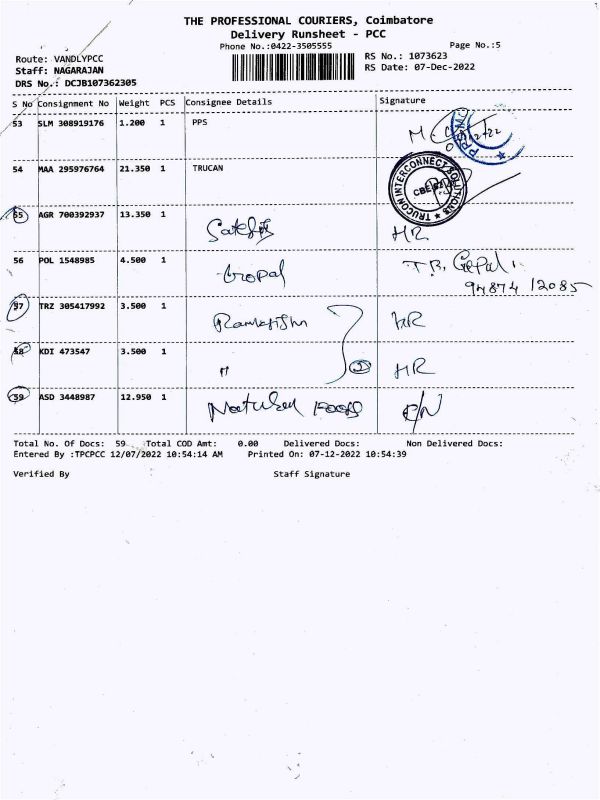 THE PROFESSIONAL COURIERS, Coimbatore
Delivery Runsheet - PCC
Phone No.:0422-3505555
Page No.:5
Route: VANDLYPCC
RS No.: 1073623
Staff: NAGARAJAN
RS Date: 07-Dec-2022
DRS No.: DCJB107362305
S No Consignment No Weight PCS Consignee Details Signature
53 SLM 308919176 1.200 1 PPS
54 MAA 295976764 21.350 1 TRUCAN
TRUCON INTERCONNECT SOLUTIONS
55 AGR 700392937 13.350 1 HR
56 POL 1548985 4.500 1 Gopal T.R. Gopal
94874 12085
57 TRZ 305417992 3.500 1 HR
58 KDI 473547 3.500 1 " HR
59 ASD 3448987 12.950 1 Natural Foods
Total No. Of Docs: 59 Total COD Amt: 0.00 Delivered Docs: Non Delivered Docs:
Entered By :TPCPCC 12/07/2022 10:54:14 AM Printed On: 07-12-2022 10:54:39
Verified By Staff Signature